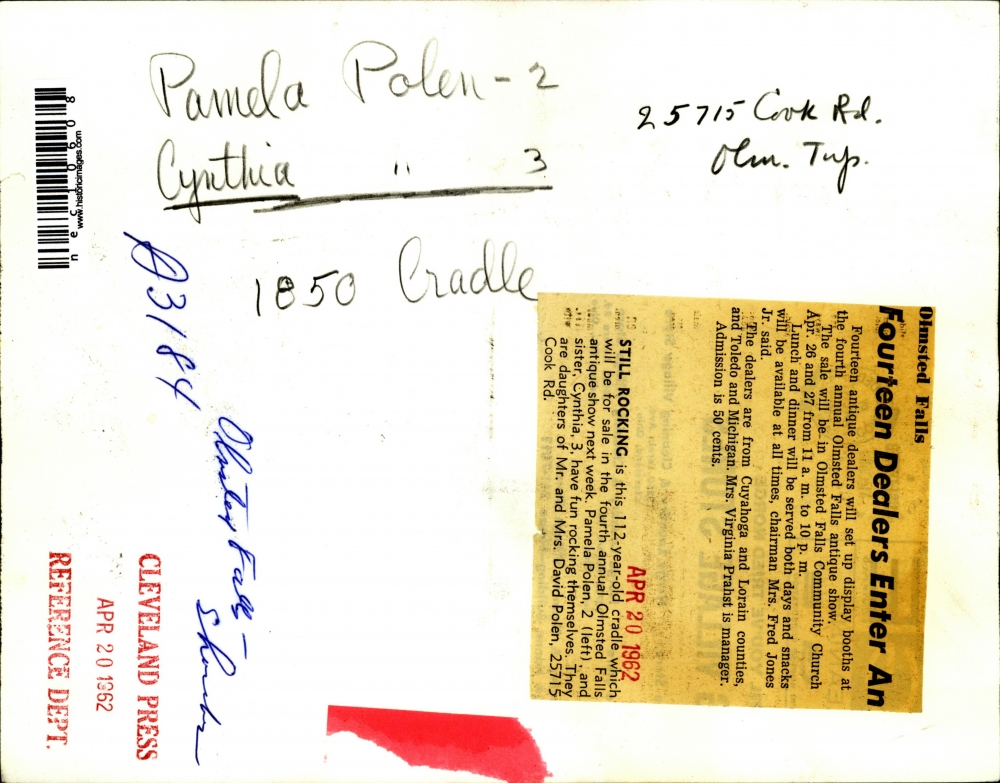 Pamela Polen - 2
Cynthia " 3
25715 Cook Rd.
Olm. Twp.
1850 Cradle
necj10608
www.historicimages.com
Olmsted Falls
Fourteen Dealers Enter An
Fourteen antique dealers will set up display booths at
the fourth annual Olmsted Falls antique show.
The sale will be in Olmsted Falls Community Church
Apr. 26 and 27 from 11 a. m. to 10 p. m.
Lunch and dinner will be served both days and snacks
will be available at all times, chairman Mrs. Fred Jones
Jr. said.
The dealers are from Cuyahoga and Lorain counties,
and Toledo and Michigan. Mrs. Virginia Prahst is manager.
Admission is 50 cents.
APR 20 1962
STILL ROCKING is this 112-year-old cradle which
will be for sale in the fourth annual Olmsted Falls
antique show next week. Pamela Polen, 2 (left), and
sister, Cynthia, 3, have fun rocking themselves. They
are daughters of Mr. and Mrs. David Polen, 25715
Cook Rd.
03184
CLEVELAND PRESS
APR 20 1962
REFERENCE DEPT.